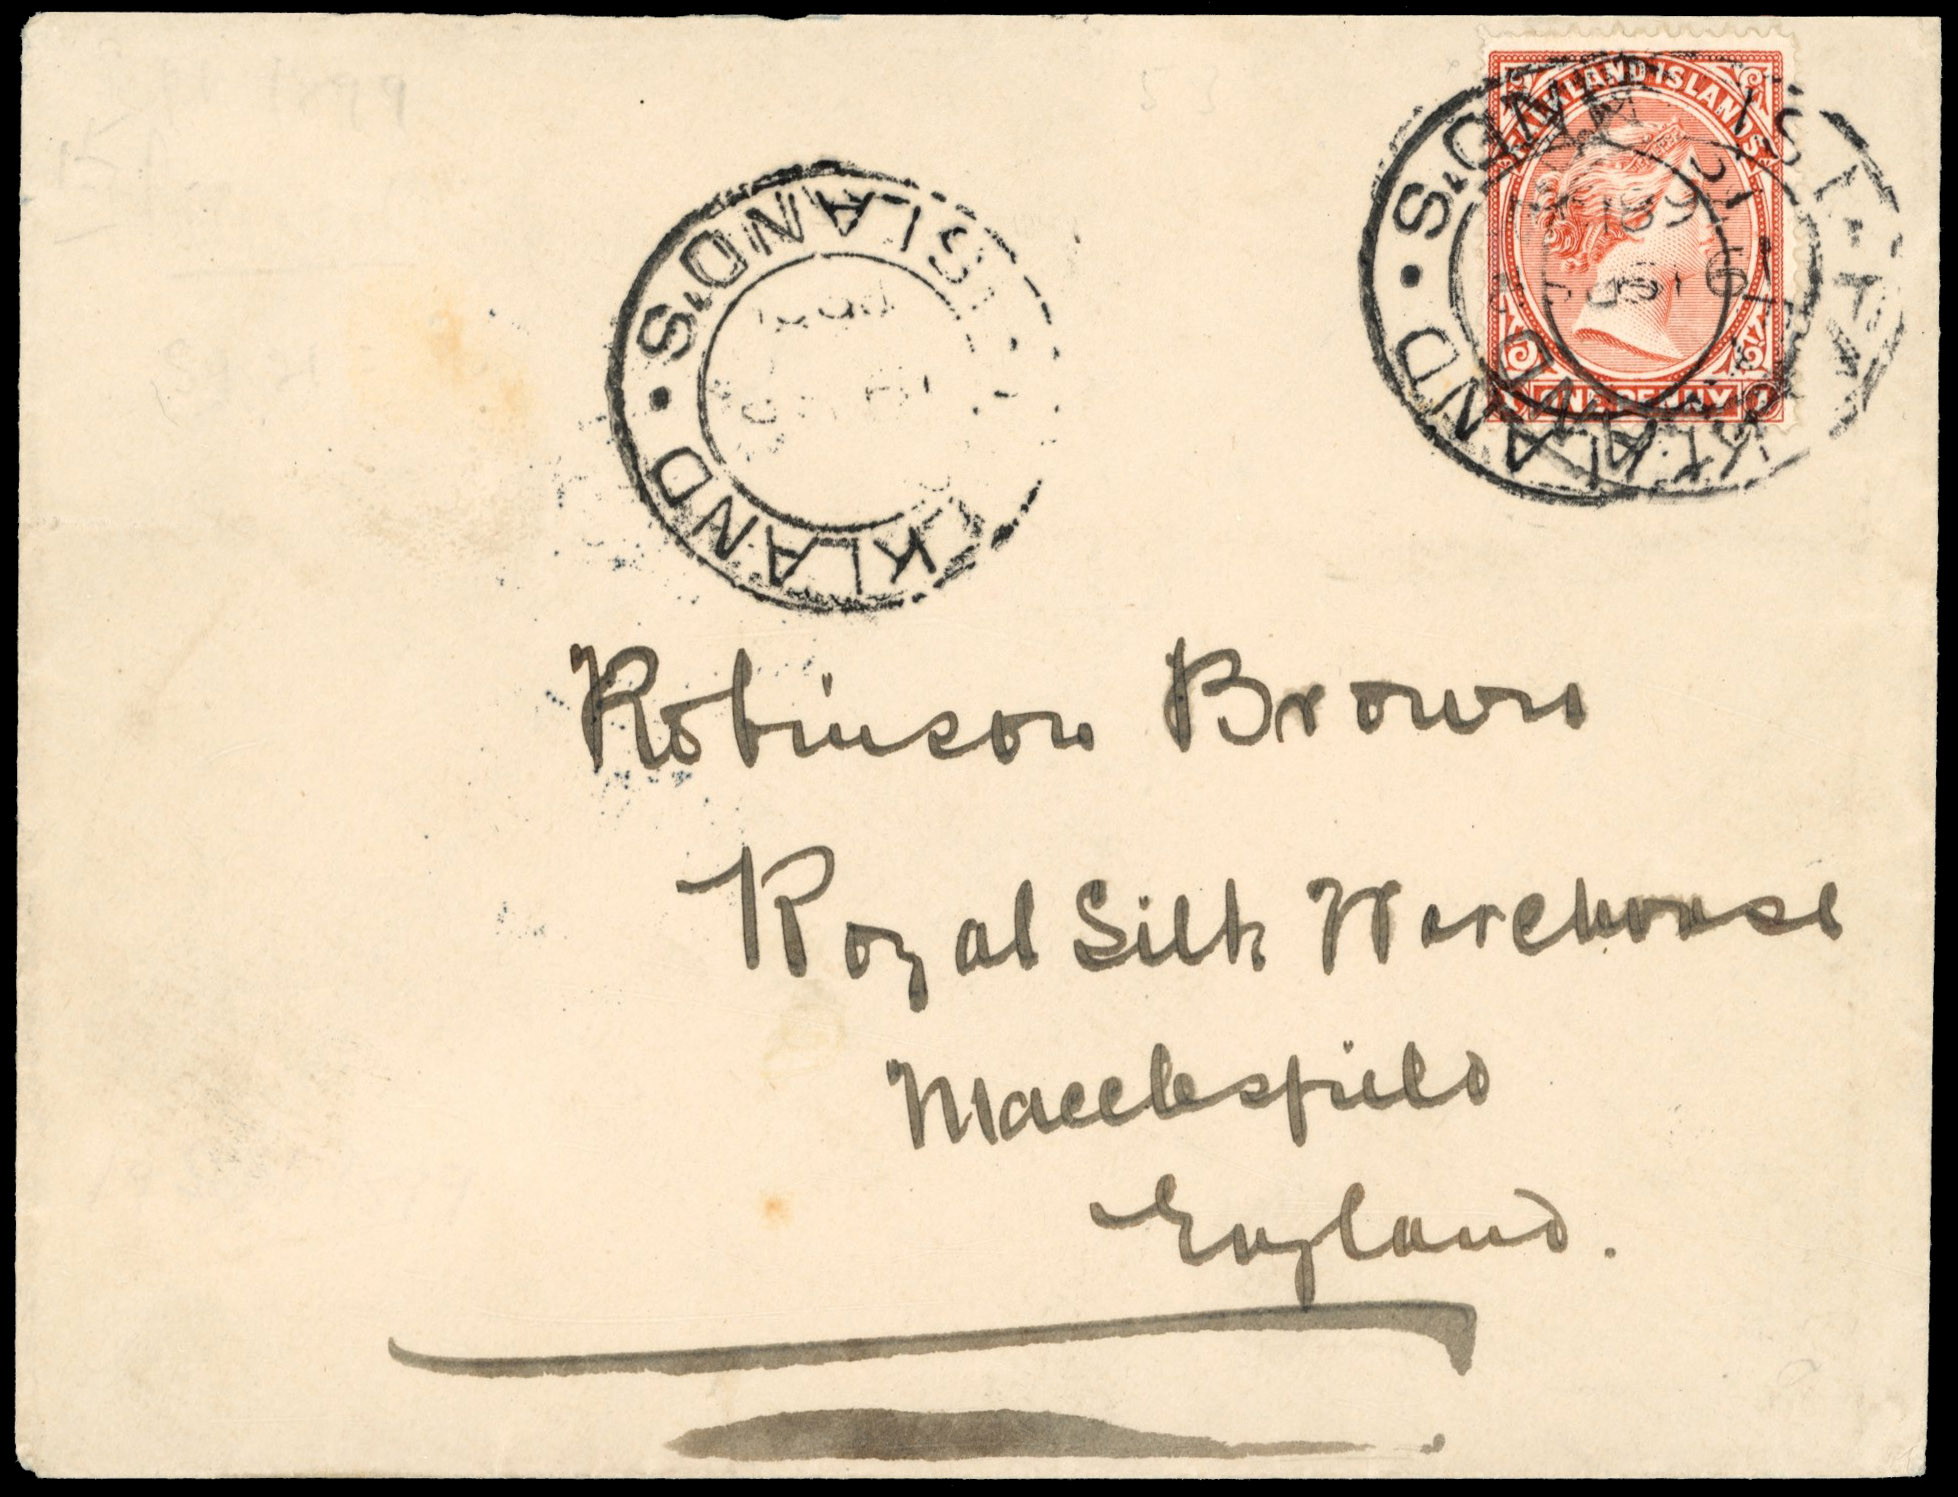 FALKLAND ISLANDS
ONE PENNY
ISLAND'S
KLAND
Robinson Brown
Royal Silk Warehouse
Macclesfield
England.